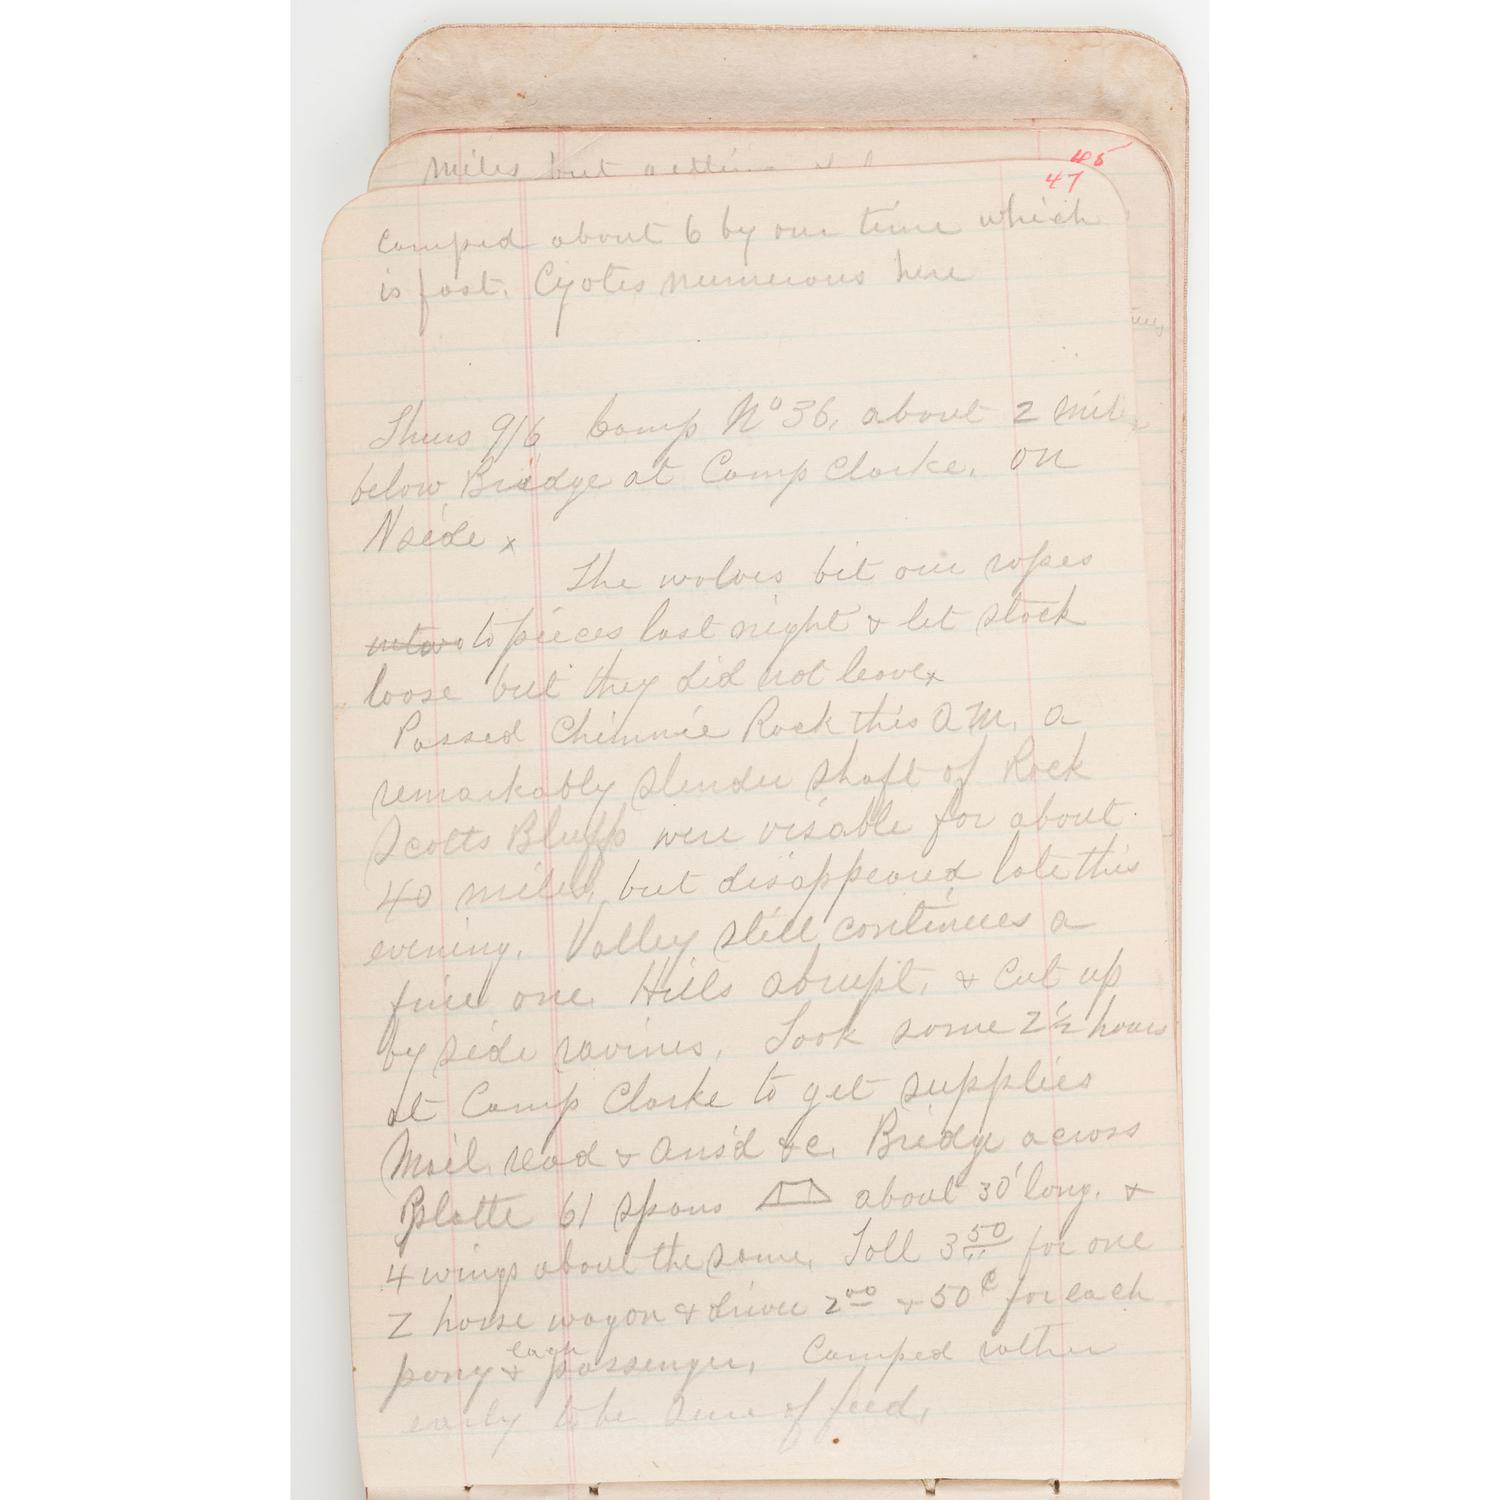 miles but
45
47
camped about 6 by our time which
is fast. Cyotes numerous here
Thurs 9/6 Camp No 36, about 2 mile
below Bridge at Camp Clarke, on
N side x
The wolves bit our ropes
in two to pieces last night & let stock
loose but they did not leave x
Passed Chimnie Rock this A.M. a
remarkably slender shaft of Rock
Scotts Bluffs were visable for about
40 miles, but disappeared late this
evening. Valley still continues a
fine one. Hills abrupt, & cut up
by side ravines. Took some 2½ hours
at Camp Clarke to get supplies
Mail, read & ans'd &c. Bridge across
Platte 61 spans about 30' long. &
4 wings about the same. Toll 3 50 for one
2 horse wagon & driver 2 00 & 50 c for each
pony & each passenger. Camped rather
early to be sure of feed.